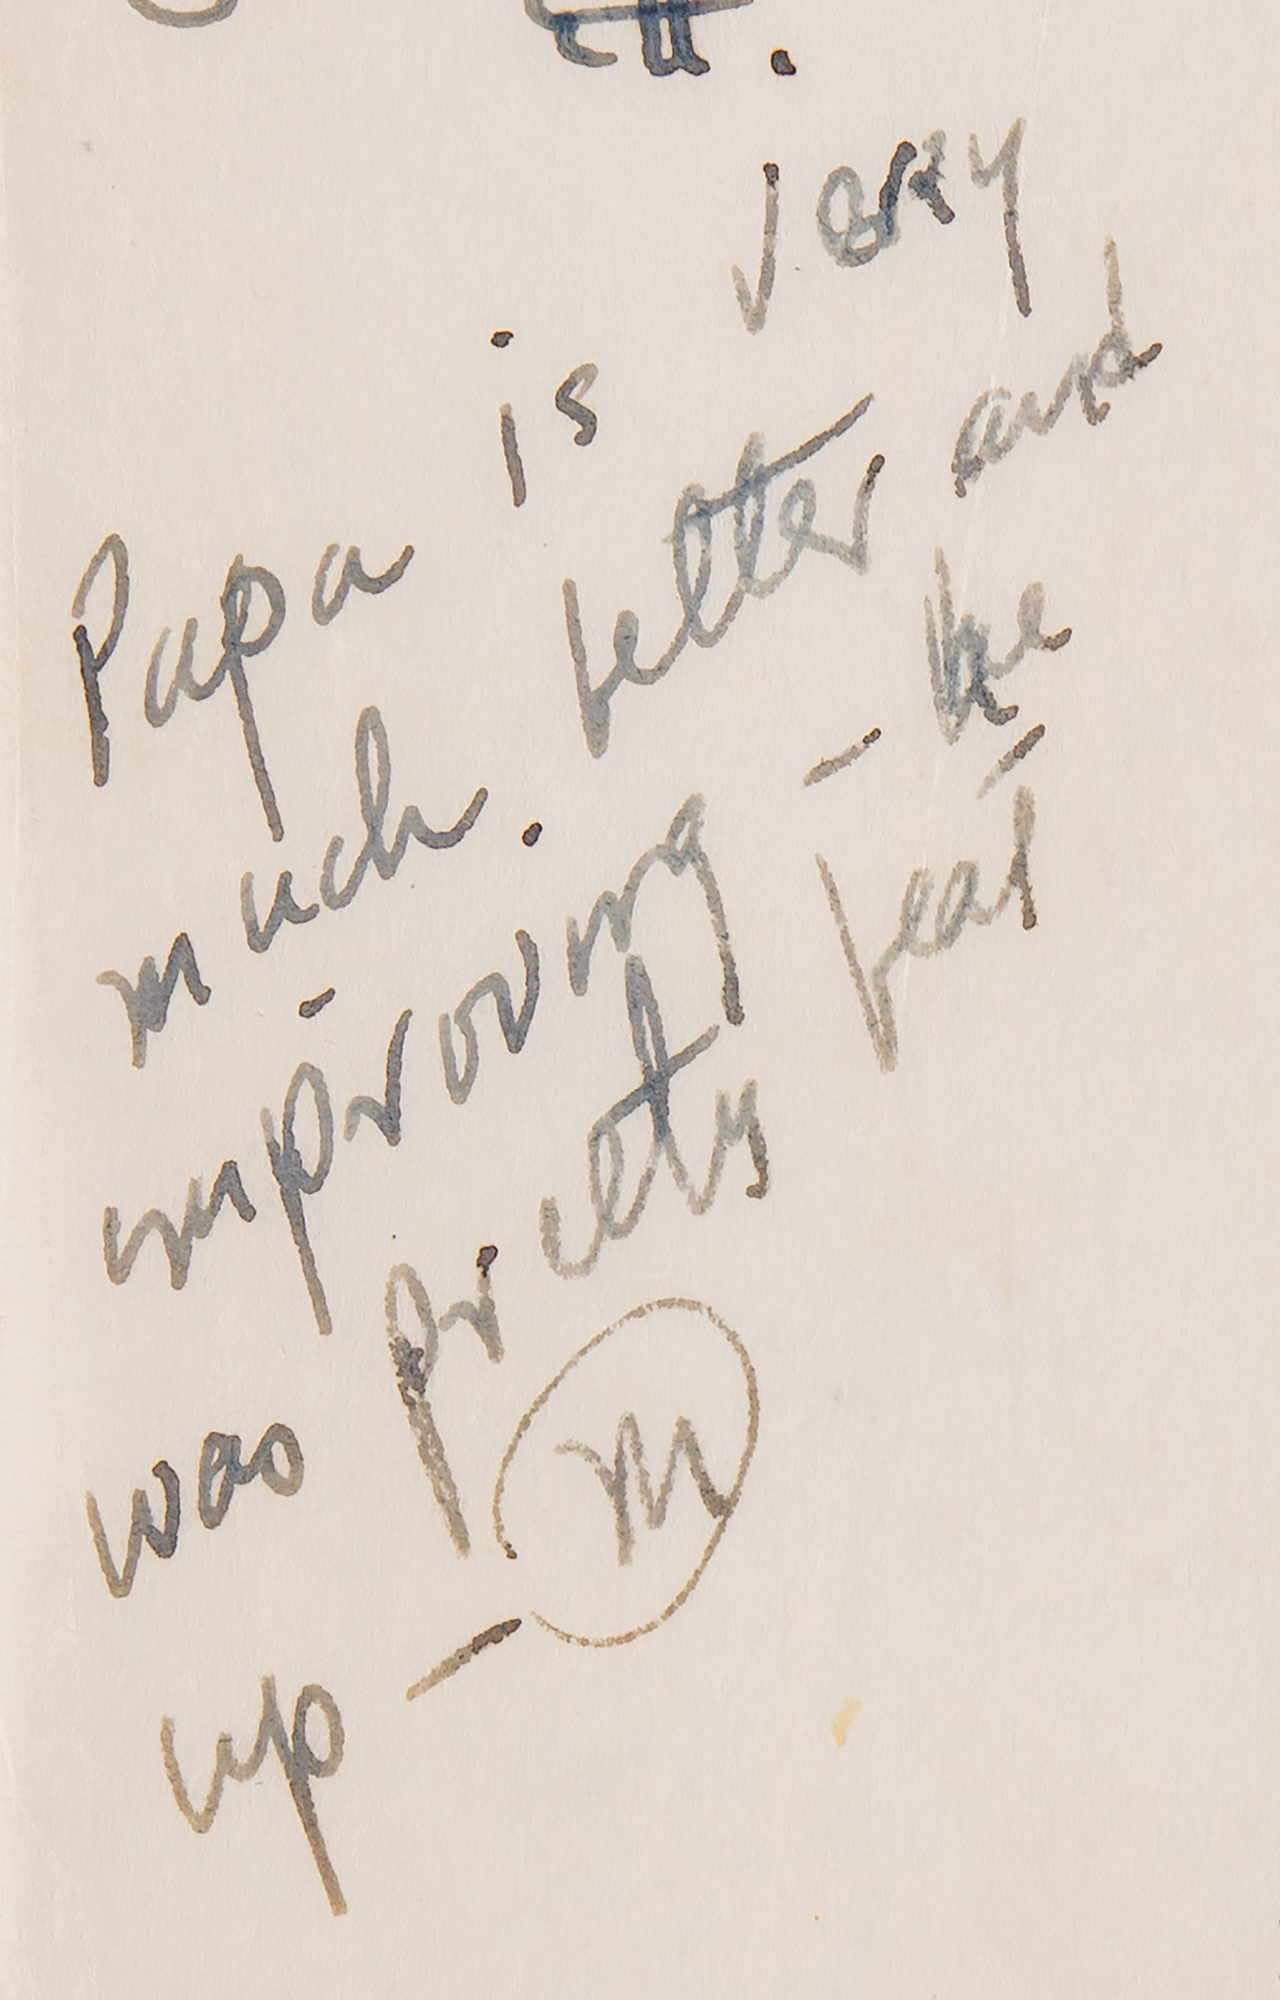 Papa is very
much better and
improving – he
was pretty beat
up – M